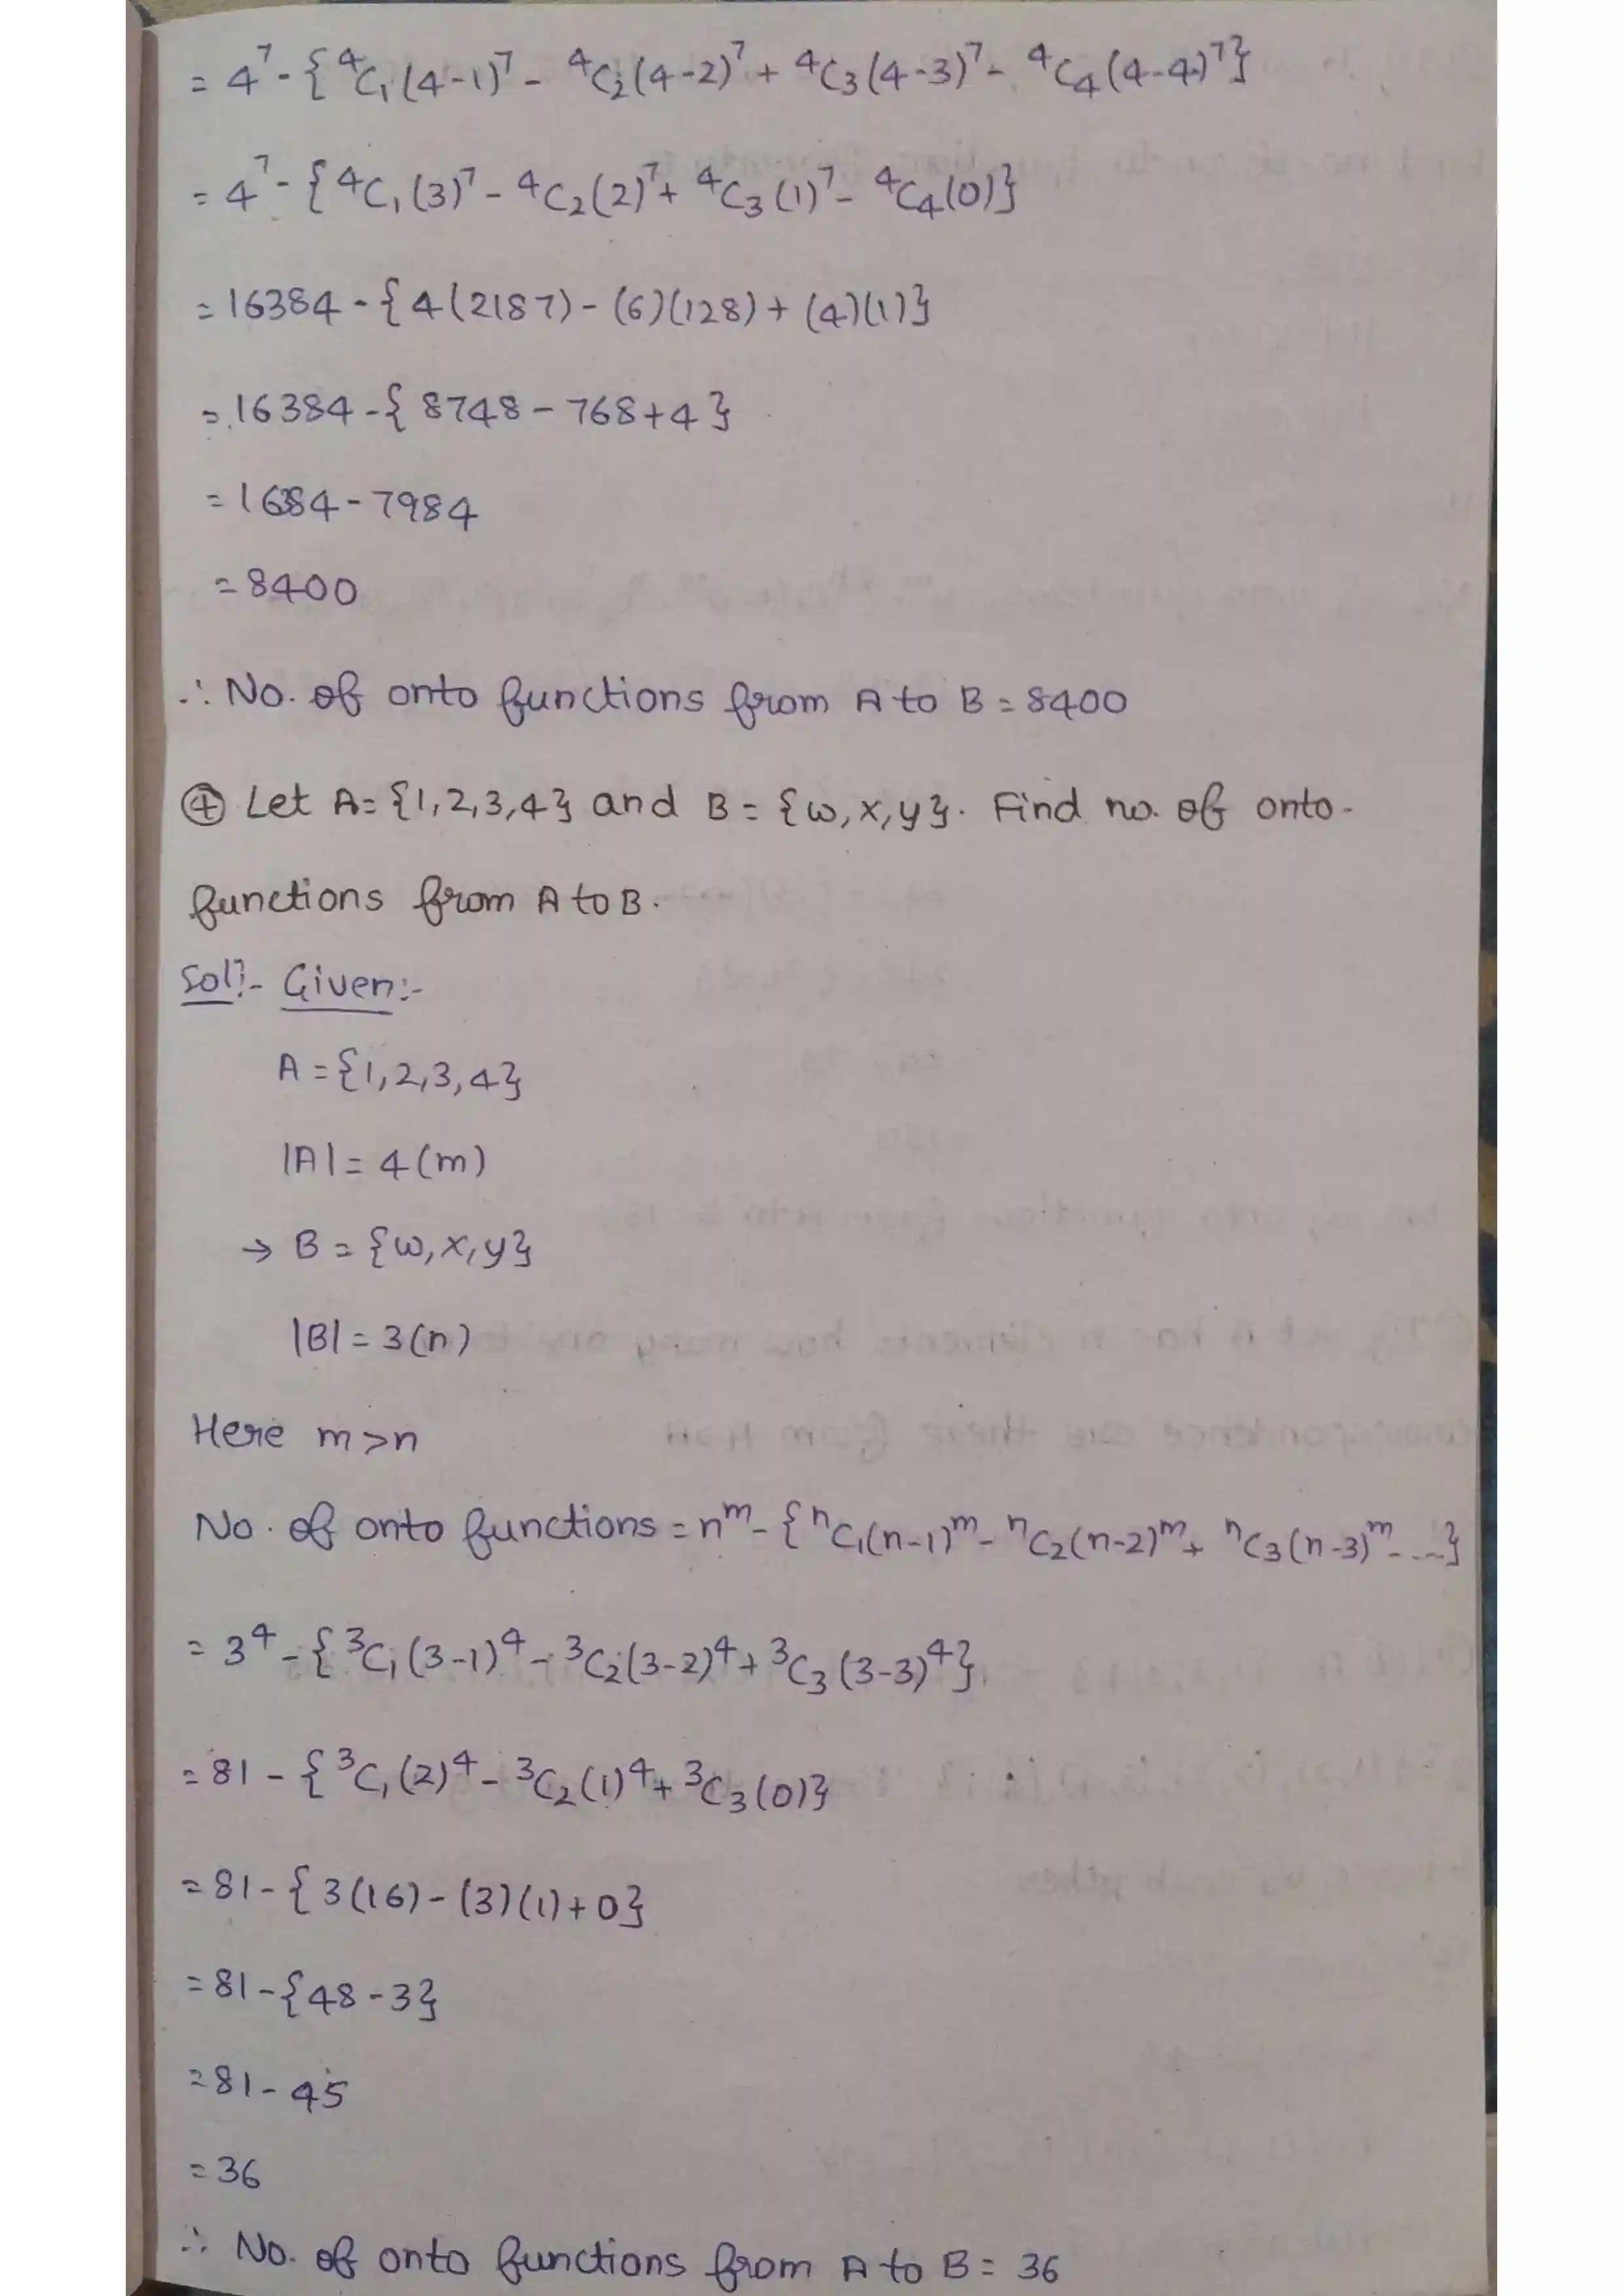 = 4⁷ - {⁴C₁(4-1)⁷ - ⁴C₂(4-2)⁷ + ⁴C₃(4-3)⁷ - ⁴C₄(4-4)⁷}
= 4⁷ - {⁴C₁(3)⁷ - ⁴C₂(2)⁷ + ⁴C₃(1)⁷ - ⁴C₄(0)}
= 16384 - {4(2187) - (6)(128) + (4)(1)}
= 16384 - {8748 - 768 + 4}
= 16384 - 7984
= 8400
∴ No. of onto functions from A to B = 8400
④ Let A = {1,2,3,4} and B = {w,x,y}. Find no. of onto-
functions from A to B.
Sol:- Given:-
A = {1,2,3,4}
|A| = 4(m)
→ B = {w,x,y}
|B| = 3(n)
Here m>n
No. of onto functions = nᵐ - {ⁿC₁(n-1)ᵐ - ⁿC₂(n-2)ᵐ + ⁿC₃(n-3)ᵐ - ...}
= 3⁴ - {³C₁(3-1)⁴ - ³C₂(3-2)⁴ + ³C₃(3-3)⁴}
= 81 - {³C₁(2)⁴ - ³C₂(1)⁴ + ³C₃(0)}
= 81 - {3(16) - (3)(1) + 0}
= 81 - {48 - 3}
= 81 - 45
= 36
∴ No. of onto functions from A to B = 36